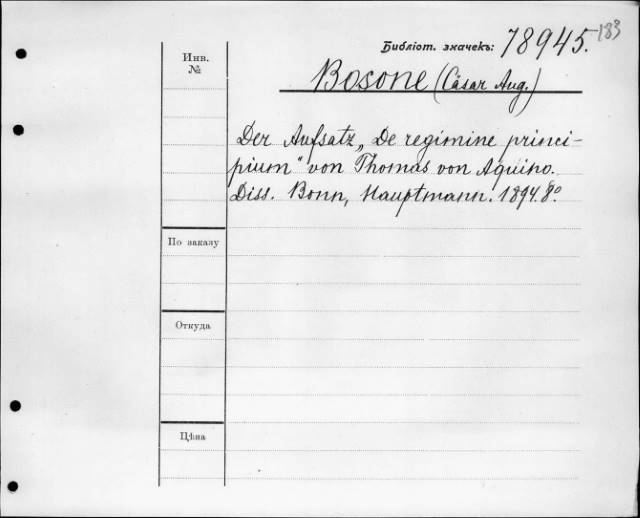 183
Библіот. значекъ: 78945.
Инв.
№
Bosone (Cäsar Aug.)
Der Aufsatz „De regimine princi-
pium" von Thomas von Aquino.
Diss. Bonn, Hauptmann. 1894. 8º
По заказу
Откуда
Цѣна